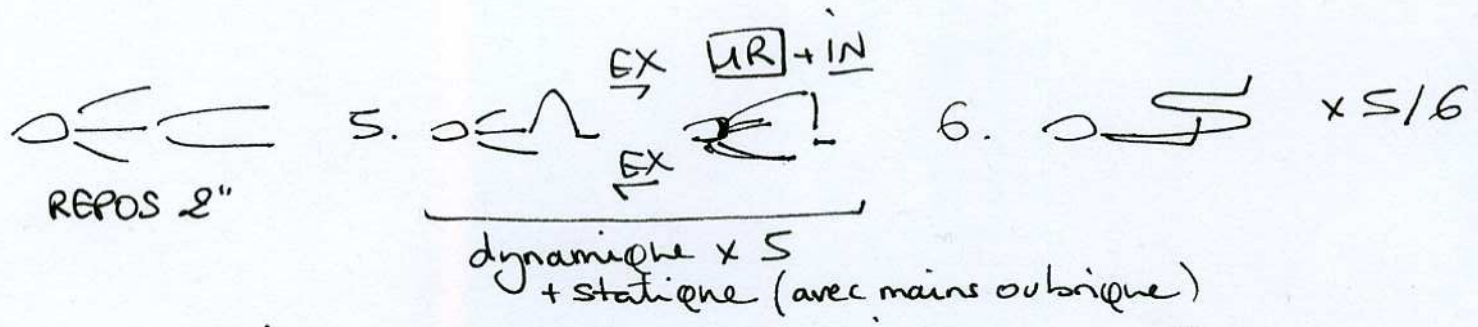 EX UR + IN
5. 6. x 5/6
EX
REPOS 2"
dynamique x 5
+ statique (avec mains ou brique)